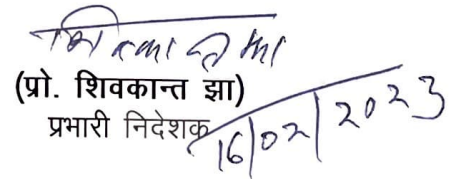 शिवकान्त झा
(प्रो. शिवकान्त झा)
प्रभारी निदेशक
16/02/2023